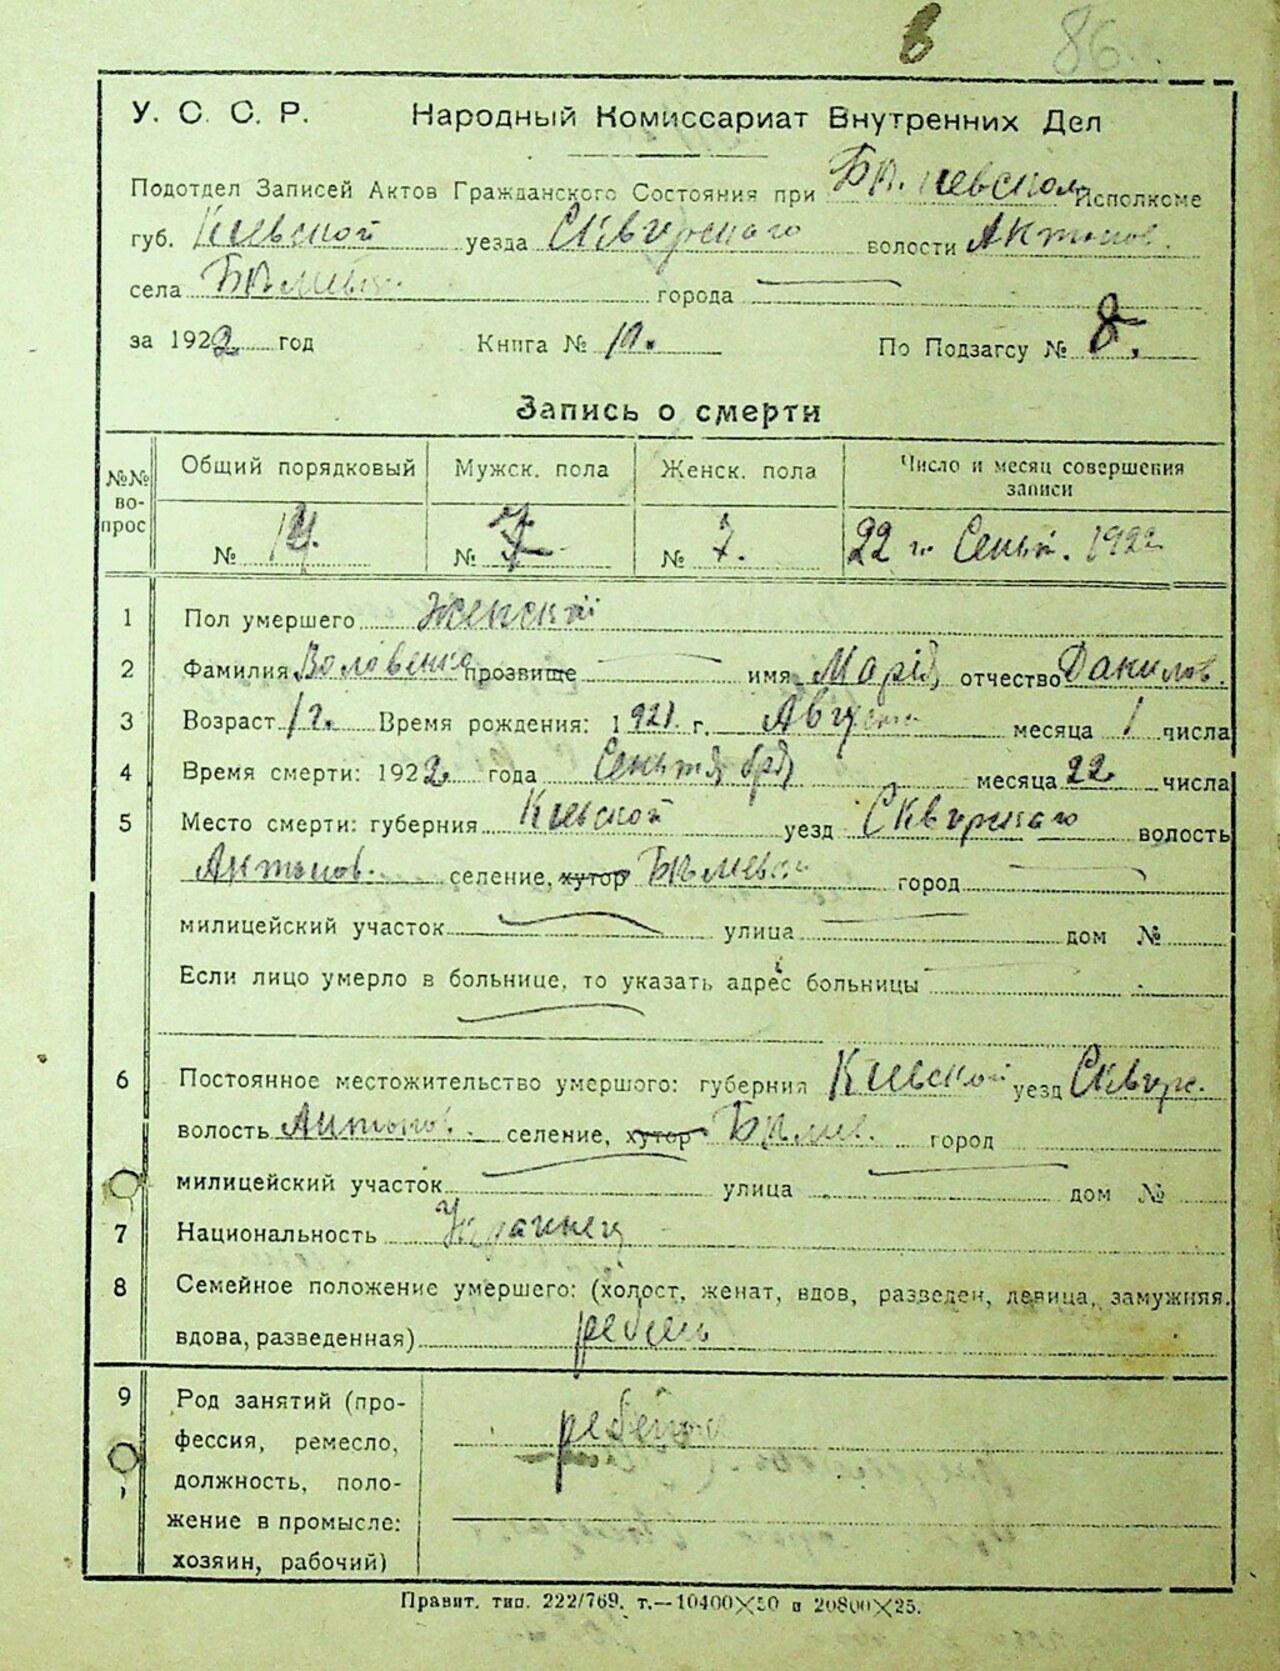 в 86
У. С. С. Р. Народный Комиссариат Внутренних Дел
Подотдел Записей Актов Гражданского Состояния при Исполкоме
губ. Киевской уезда Сквирскаго волости Антонов.
села города
за 1922 год Книга № По Подзагсу № 8.
Запись о смерти
№№ вопрос Общий порядковый Мужск. пола Женск. пола Число и месяц совершения
записи
№ 14. № 7 № 7. 22 го Сентя. 1922
1 Пол умершего Женский
2 Фамилия Воловенко прозвище имя Марія отчество Данилов.
3 Возраст 1 г. Время рождения: 1921. г. Августа месяца 1 числа
4 Время смерти: 1922 года Сентября месяца 22 числа
5 Место смерти: губерния Киевской уезд Сквирскаго волость
Антонов. селение, хутор город
милицейский участок улица дом №
Если лицо умерло в больнице, то указать адрес больницы
6 Постоянное местожительство умершого: губерния Киевской уезд Сквирс.
волость Антонов. селение, хутор город
милицейский участок улица дом №
7 Национальность Украинец
8 Семейное положение умершего: (холост, женат, вдов, разведен, девица, замужняя.
вдова, разведенная)
9 Род занятий (про- ребенок
фессия, ремесло,
должность, поло-
жение в промысле:
хозяин, рабочий)
Правит. тип. 222/769. т.—10400×50 и 20800×25.